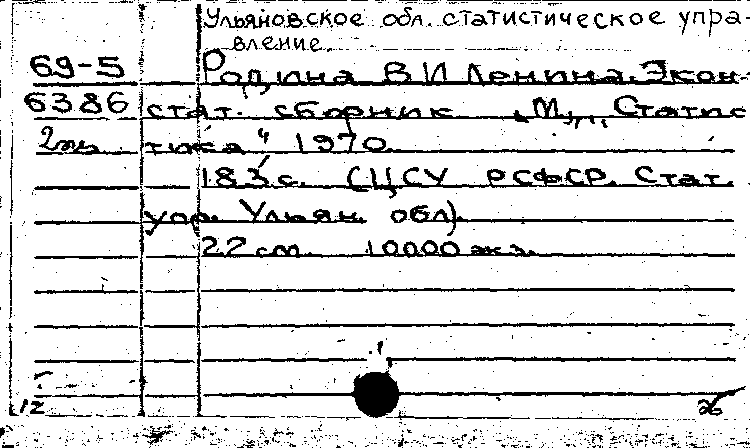 Ульяновское обл. статистическое упра-
вление.
69-5 Родина В И Ленина. Экон-
6386 стат. сборник „М., Статис
тика“ 1970
183 с. (ЦСУ РСФСР. Стат.
упр. Ульян. обл).
22 см. 10000 экз.